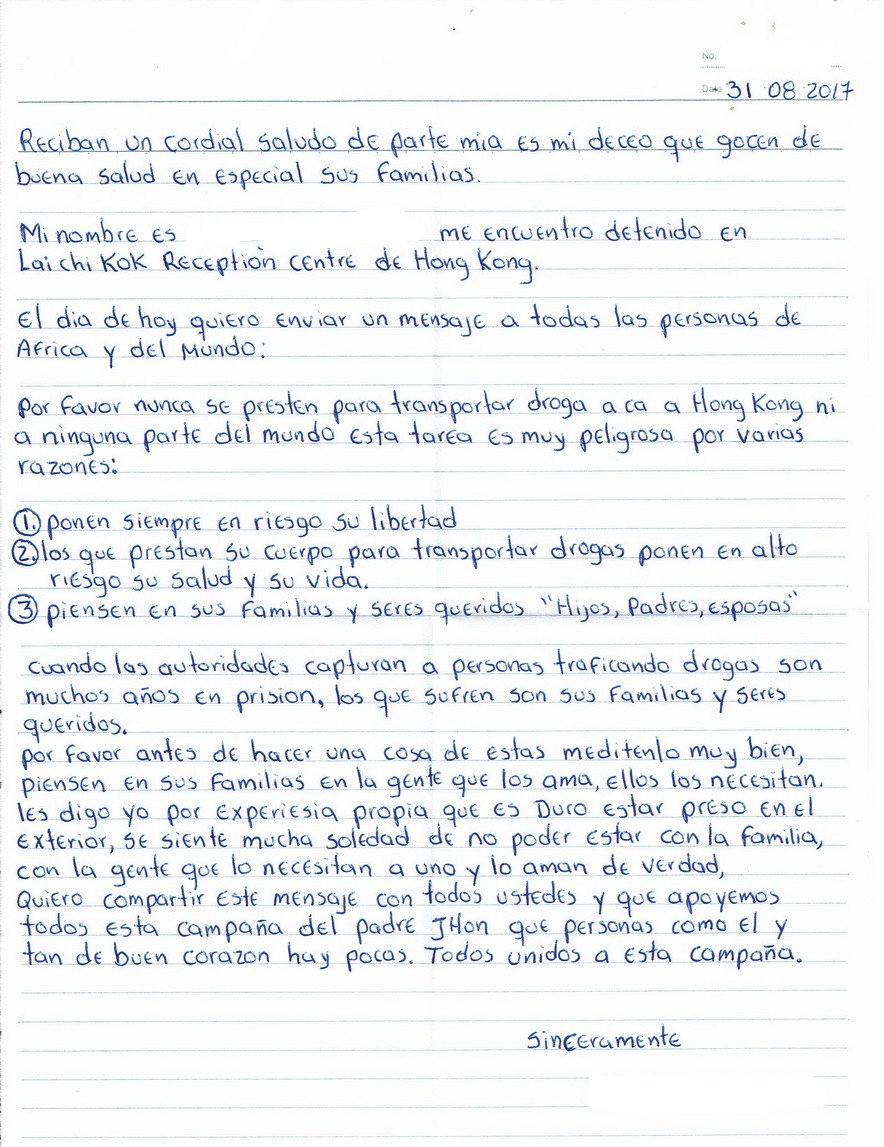 No.
Date 31 08 2017
Reciban un cordial saludo de parte mia es mi deceo que gocen de
buena salud en especial sus familias.
Mi nombre es me encuentro detenido en
Lai chi KOK Reception centre de Hong Kong.
El dia de hoy quiero enviar un mensaje a todas las personas de
Africa y del Mundo:
por favor nunca se presten para transportar droga a ca a Hong Kong ni
a ninguna parte del mundo esta tarea es muy peligrosa por varias
razones:
1. ponen siempre en riesgo su libertad
2. los que prestan su cuerpo para transportar drogas ponen en alto
riesgo su salud y su vida.
3 piensen en sus familias y seres queridos "Hijos, Padres, esposas"
cuando las autoridades capturan a personas traficando drogas son
muchos años en prision, los que sufren son sus familias y seres
queridos.
por favor antes de hacer una cosa de estas meditenlo muy bien,
piensen en sus familias en la gente que los ama, ellos los necesitan.
les digo yo por experiesia propia que es Duro estar preso en el
exterior, se siente mucha soledad de no poder estar con la familia,
con la gente que lo necesitan a uno y lo aman de verdad,
Quiero compartir este mensaje con todos ustedes y que apoyemos
todos esta campaña del padre JHon que personas como el y
tan de buen corazon hay pocas. Todos unidos a esta campaña.
Sinceramente